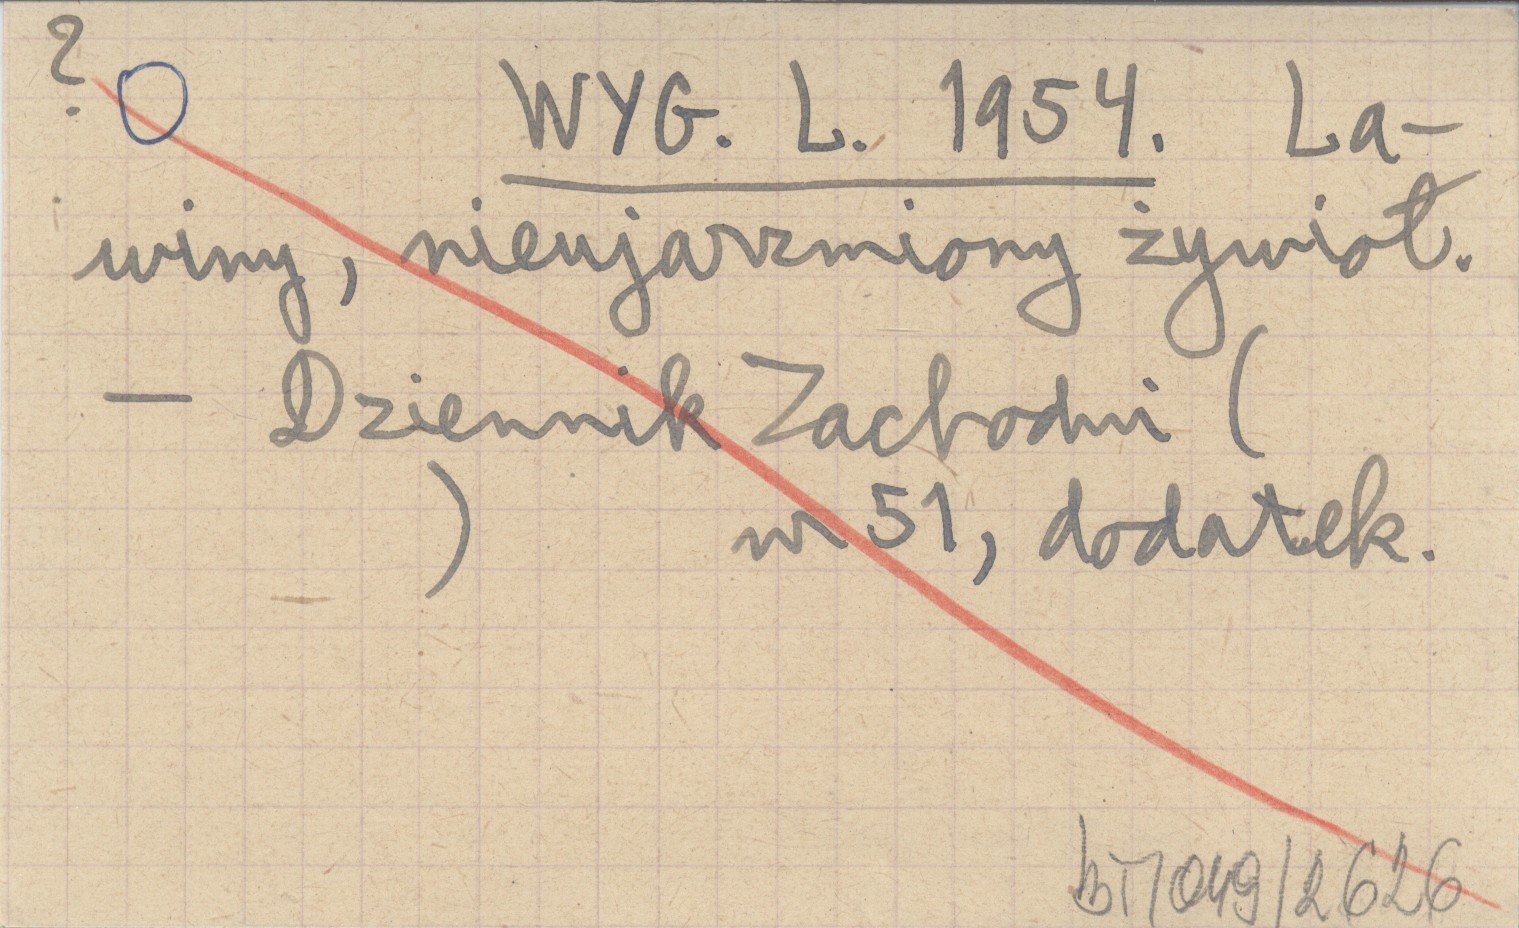 ?
WYG. L. 1954. La-
winy, nieujarzmiony żywioł.
— Dziennik Zachodni (
) nr 51, dodatek.
bT/049/2626